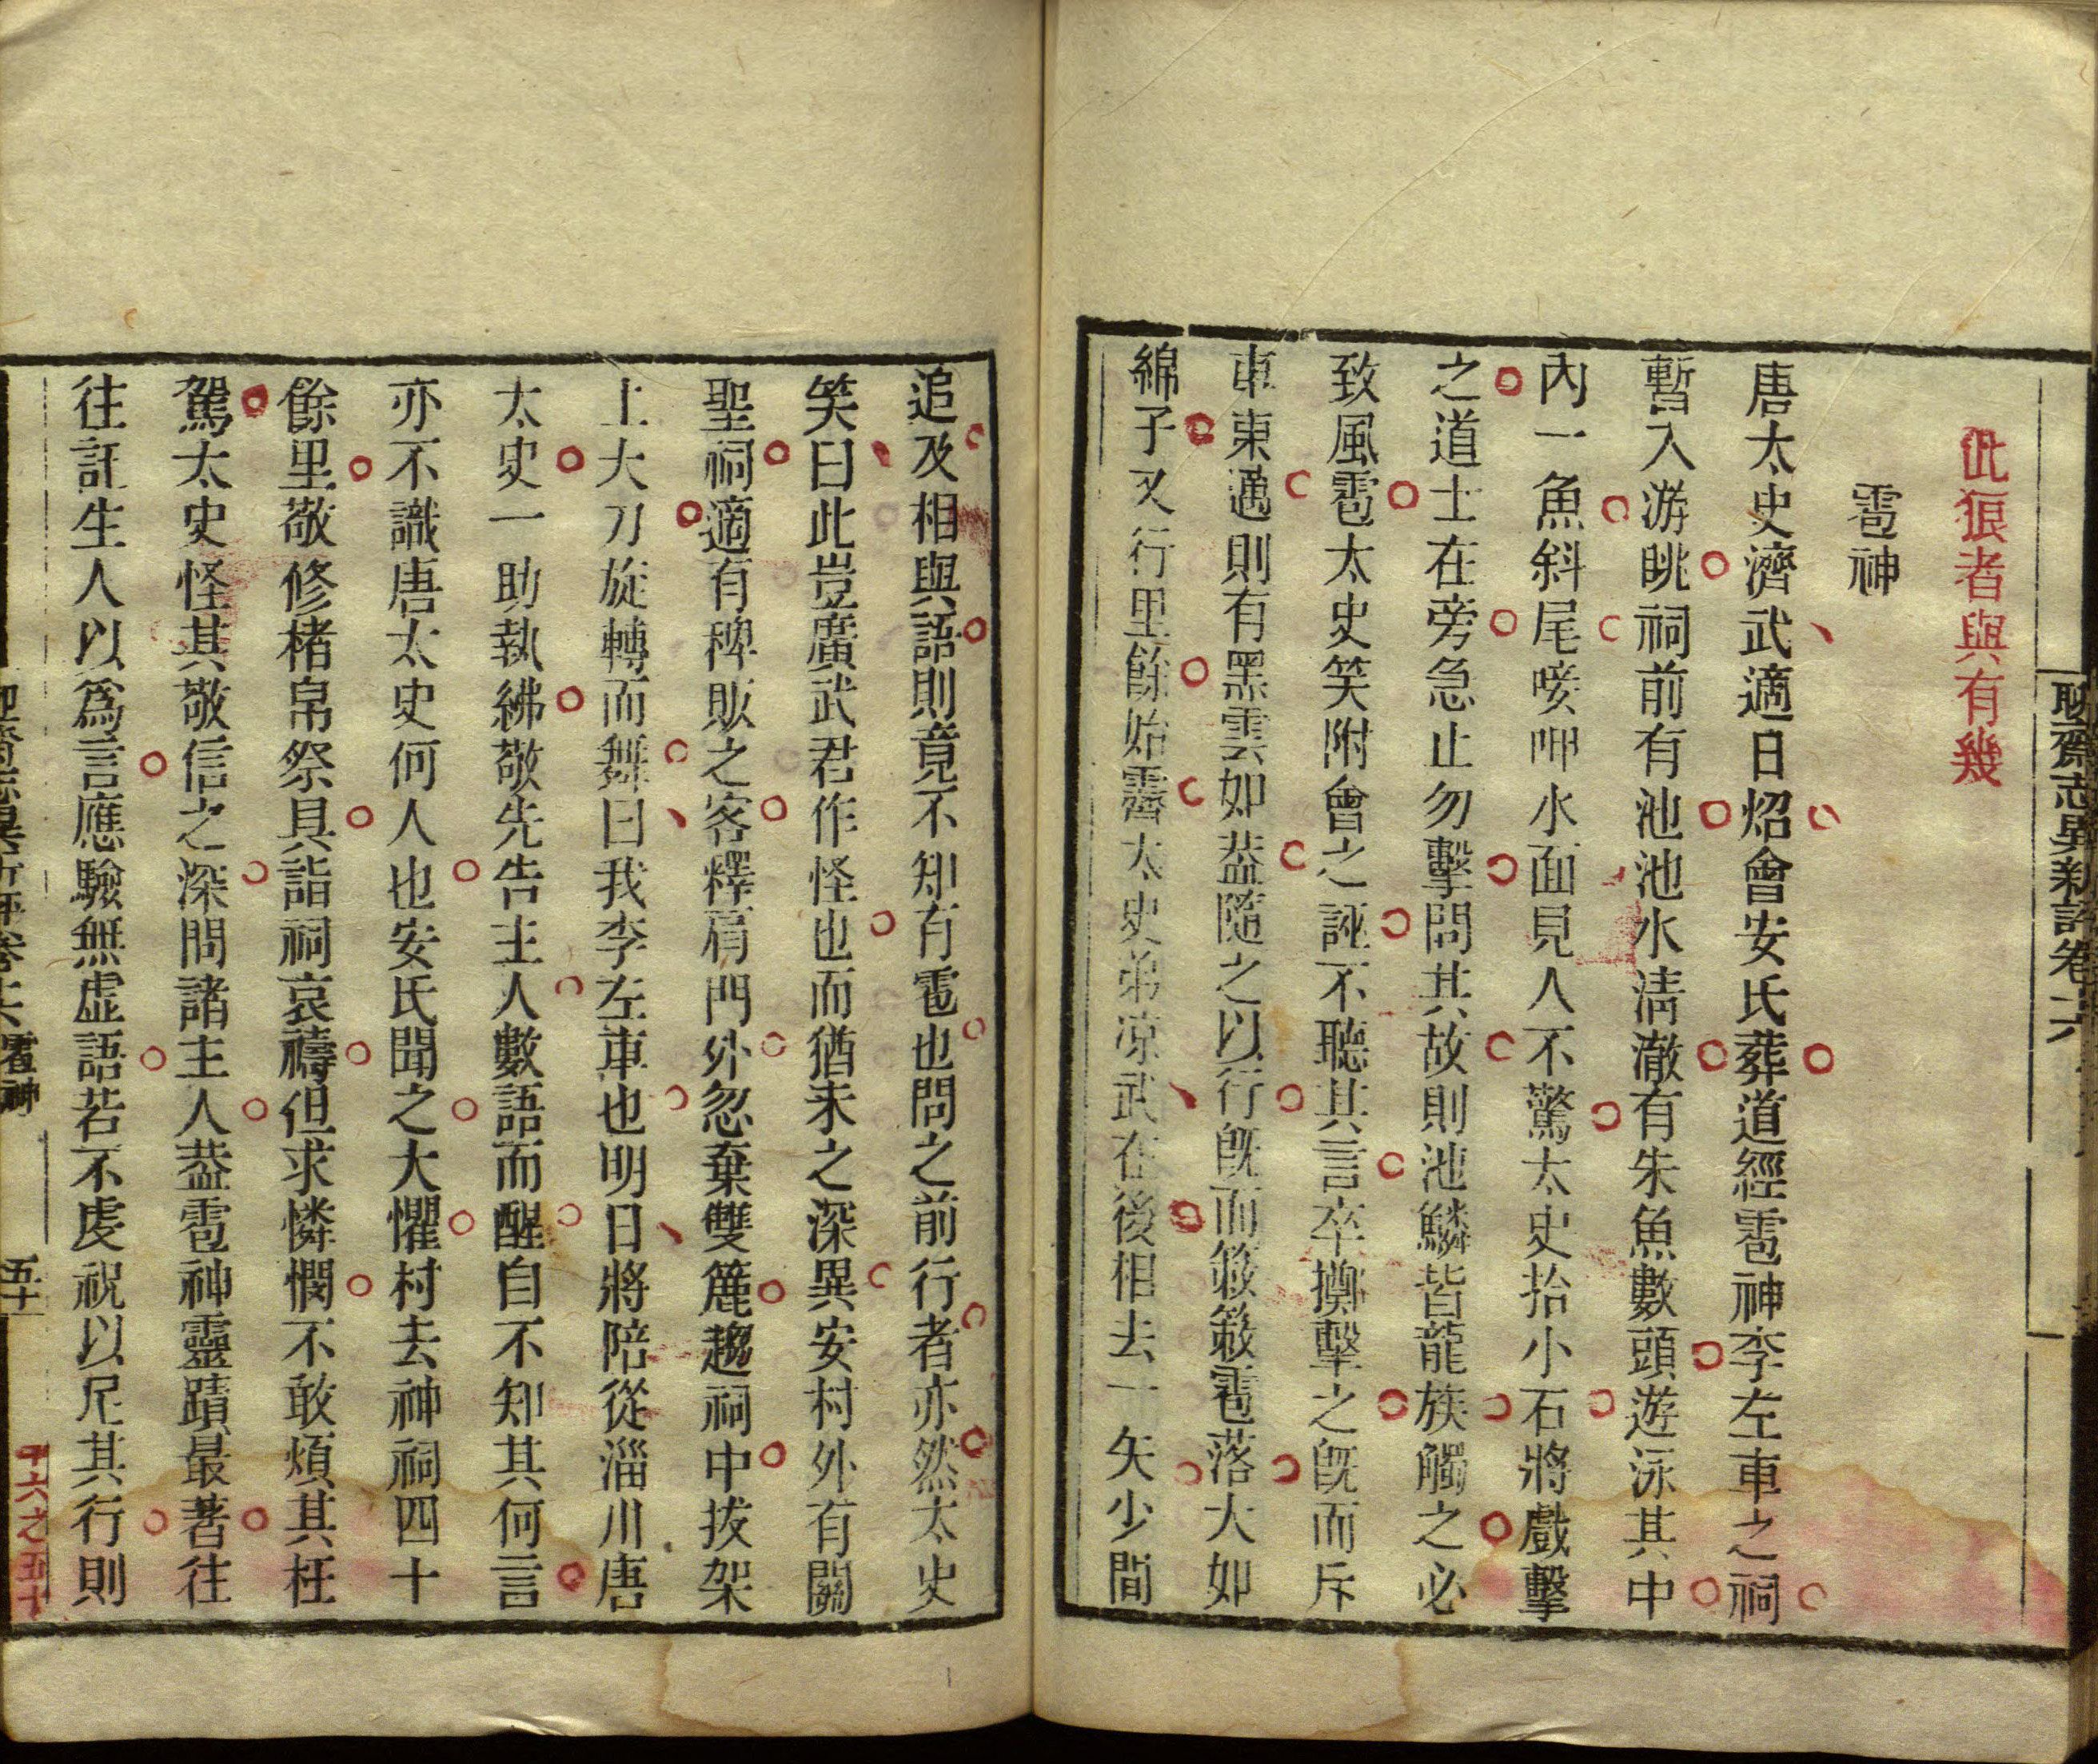 聊齋志異新評卷十六
此狼者與有幾
雹神
唐太史濟武適日炤會安氏葬道經雹神李左車之祠
暫入游眺祠前有池池水淸澈有朱魚數頭遊泳其中
內一魚斜尾唼呷水面見人不驚太史拾小石將戲擊
之道士在旁急止勿擊問其故則池鱗皆龍族觸之必
致風雹太史笑附會之誣不聽其言卒擲擊之旣而斥
車東邁則有黑雲如葢隨之以行旣而簌簌雹落大如
綿子又行里餘始霽太史弟凉武在後相去一矢少間
追及相與語則竟不知有雹也問之前行者亦然太史
笑曰此豈廣武君作怪也而猶未之深異安村外有關
聖祠適有稗販之客釋肩門外忽棄雙簏趨祠中拔架
上大刀旋轉而舞曰我李左車也明日將陪從淄川唐
太史一助執紼敬先告主人數語而醒自不知其何言
亦不識唐太史何人也安氏聞之大懼村去神祠四十
餘里敬修楮帛祭具詣祠哀禱但求憐憫不敢煩其枉
駕太史怪其敬信之深問諸主人葢雹神靈蹟最著往
往託生人以爲言應驗無虛語若不虔祝以尼其行則
聊齋志異新評卷十六 雹神 五十一
十六之五十